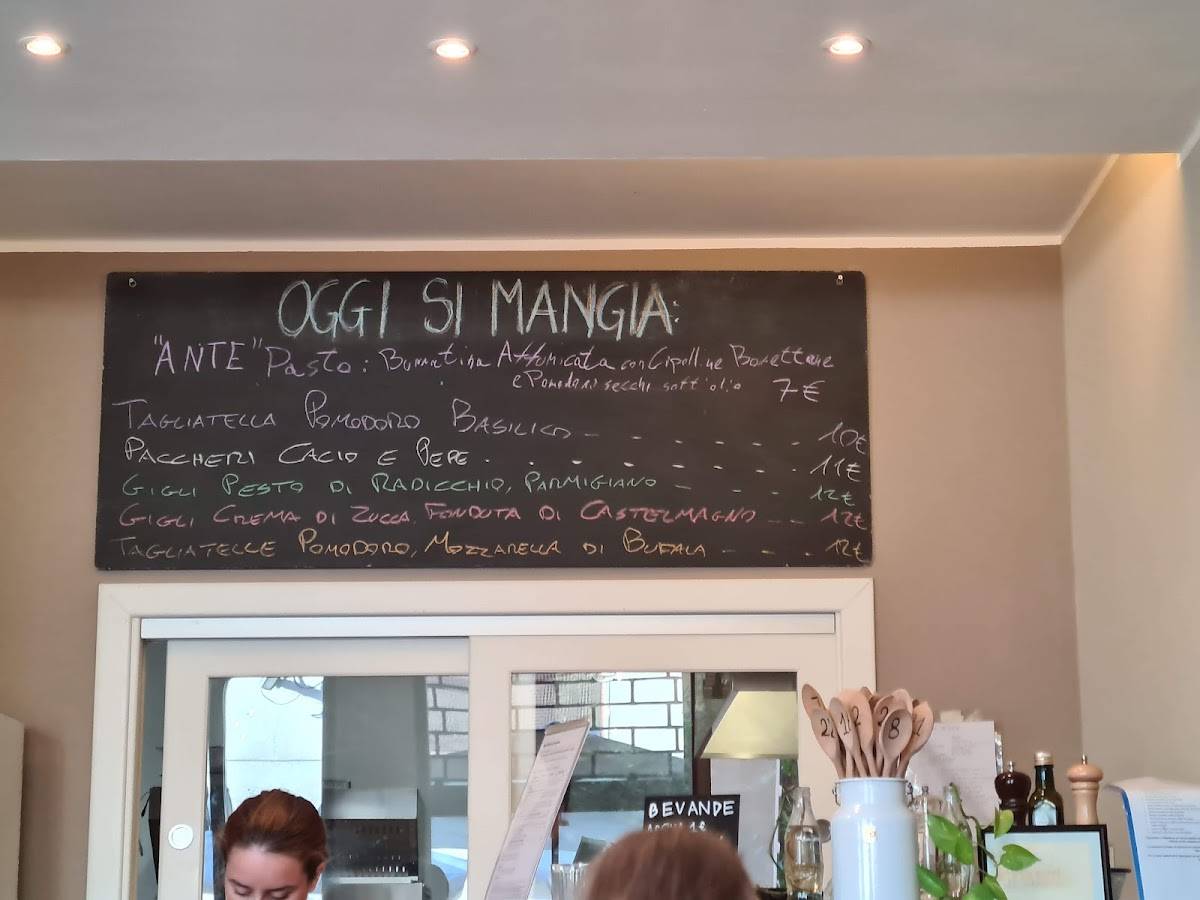 OGGI SI MANGIA:
"ANTE" Pasto: Burratina Affumicata con Cipolline Borettane
e Pomodori secchi sott'olio 7€
TAGLIATELLA POMODORO BASILICO - - - - - - 10€
PACCHERI CACIO E PEPE - - - - - - - 11€
GIGLI PESTO DI RADICCHIO, PARMIGIANO - - - 12€
GIGLI CREMA DI ZUCCA, FONDUTA DI CASTELMAGNO - - 12€
TAGLIATELLE POMODORO, MOZZARELLA DI BUFALA - - - 12€
BEVANDE
8